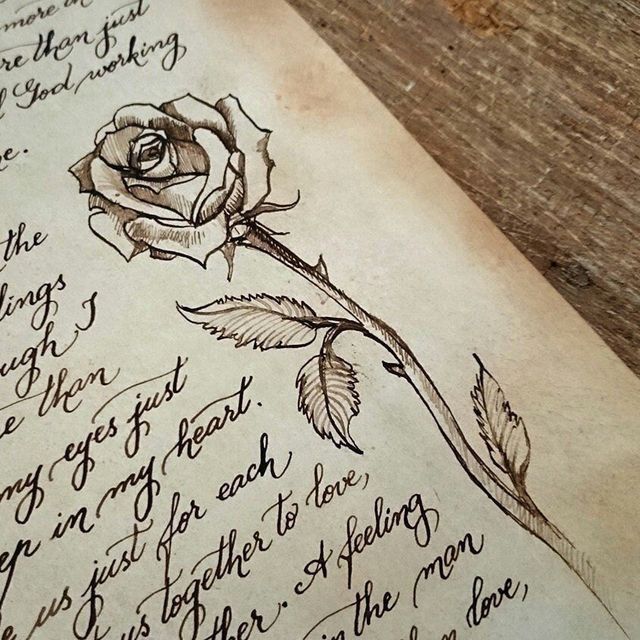 more in
re than just
God working
e.
the
lings
ugh I
e than
my eyes just
ep in my heart.
us just for each
us together to love,
ther. A feeling
in the man
love,